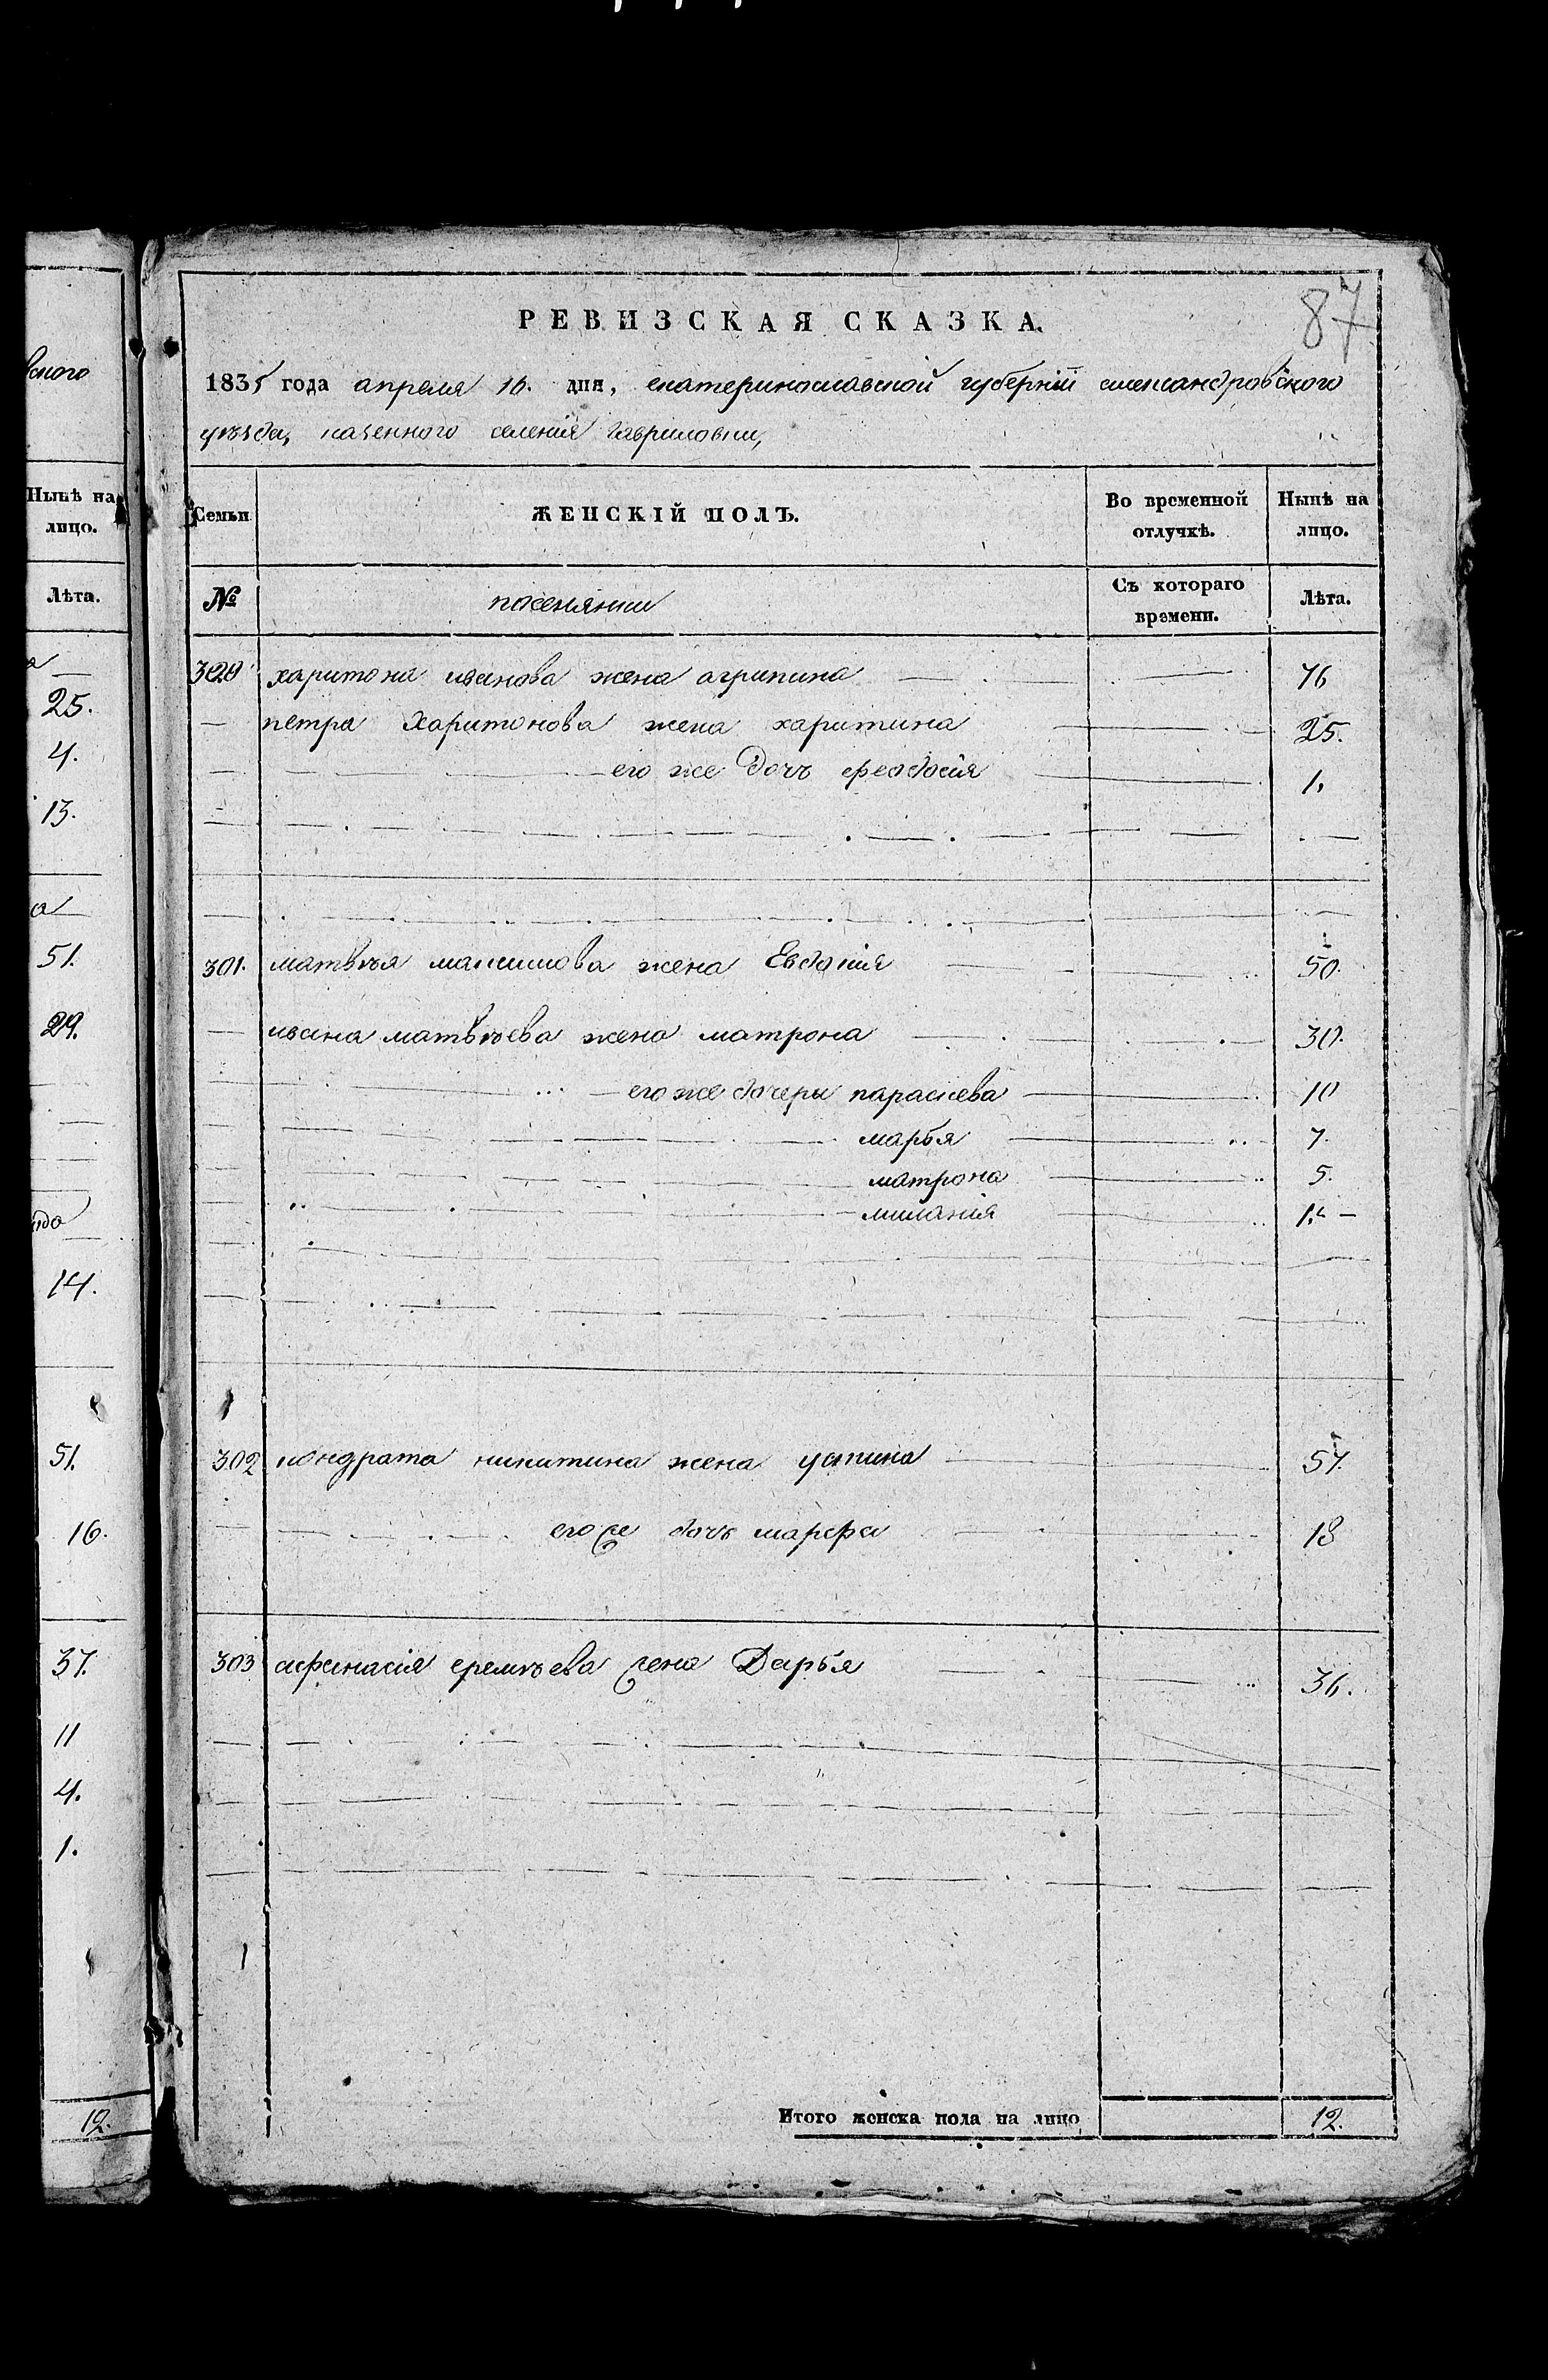 вского
Нынѣ на
лицо.
Лѣта.
а
25.
4.
13.
а
51.
29.
14.
51.
16.
37.
11
4.
1.
12.
87
РЕВИЗСКАЯ СКАЗКА.
1835 года апреля 16. дня, екатеринославской губерніи александровского
уѣзда, казенного селенія Гавриловки,
Семьи ЖЕНСКІЙ ПОЛЪ. Во временной отлучкѣ. Нынѣ на лицо.
№ поселянки Съ котораго времени. Лѣта.
харитона иванова жена агрипина 76
петра Харитонова жена харитина 25.
его же дочь феодосія 1.
301. матвѣя максимова жена Евдокія 50.
ивана матвѣева жена матрона 30.
его же дочеры параскева 10
марья 7.
матрона 5.
миланія 1.
302 кондрата никитина жена устина 57.
его же дочь марфа 18
303 афанасія еремѣева жена Дарья 36.
Итого женска пола на лицо 12.